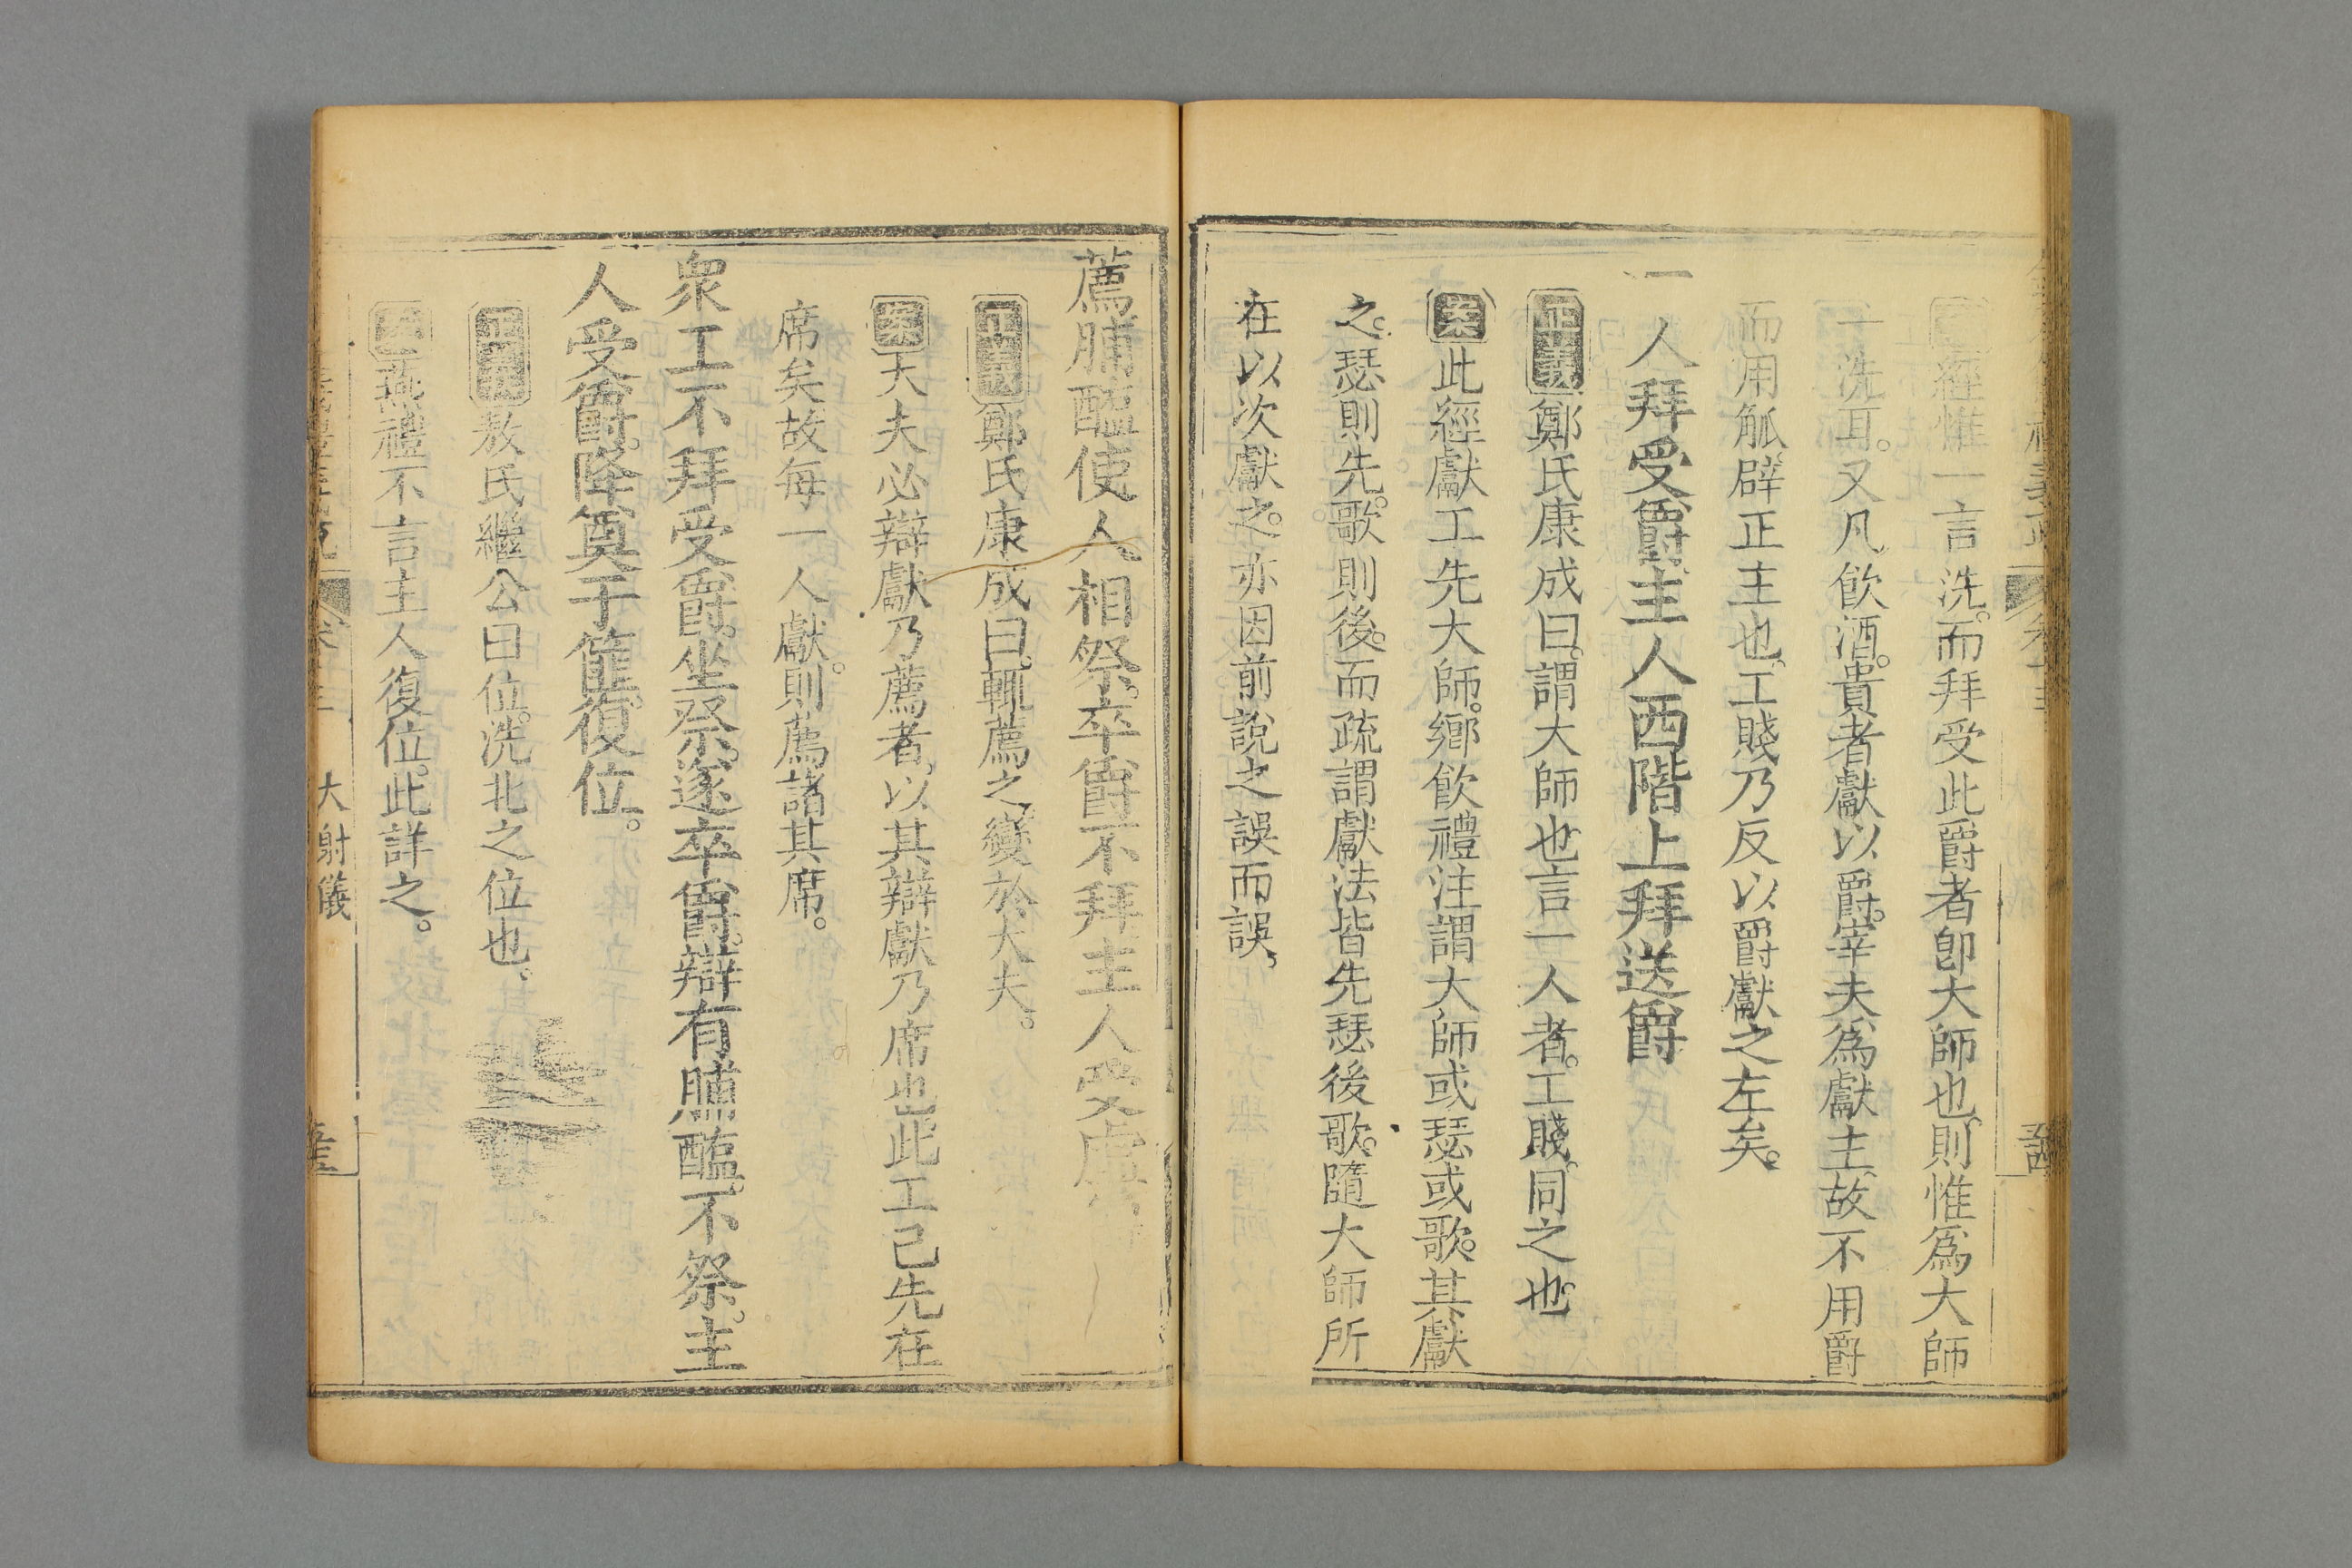 經惟一言洗。而拜受此爵者卽大師也、則惟爲大師
一洗耳。又凡飮酒。貴者獻以爵。宰夫爲獻主。故不用爵
而用觚。辟正主也、工賤乃反以爵獻之左矣。
一人拜受爵。主人西階上拜送爵
正義鄭氏康成曰。謂大師也言一人者。工賤。同之也
案此經獻工先大師。鄉飮禮注謂大師或瑟或歌。其獻
之。瑟則先。歌則後。而疏謂獻法皆先瑟後歌。隨大師所
在以次獻之。亦因前說之誤而誤、
薦脯醢使人相祭。卒爵不拜主人受虛
正義鄭氏康成曰。輒薦之、變於大夫。
案大夫必辯獻乃薦者、以其辯獻乃席也、此工已先在
席矣故每一人獻。則薦諸其席。
衆工不拜受爵。坐祭。遂卒爵。辯有脯醢。不祭。主
人受爵。降奠于篚。復位。
正義敖氏繼公曰位。洗北之位也。
案燕禮不言主人復位。此詳之。
大射儀